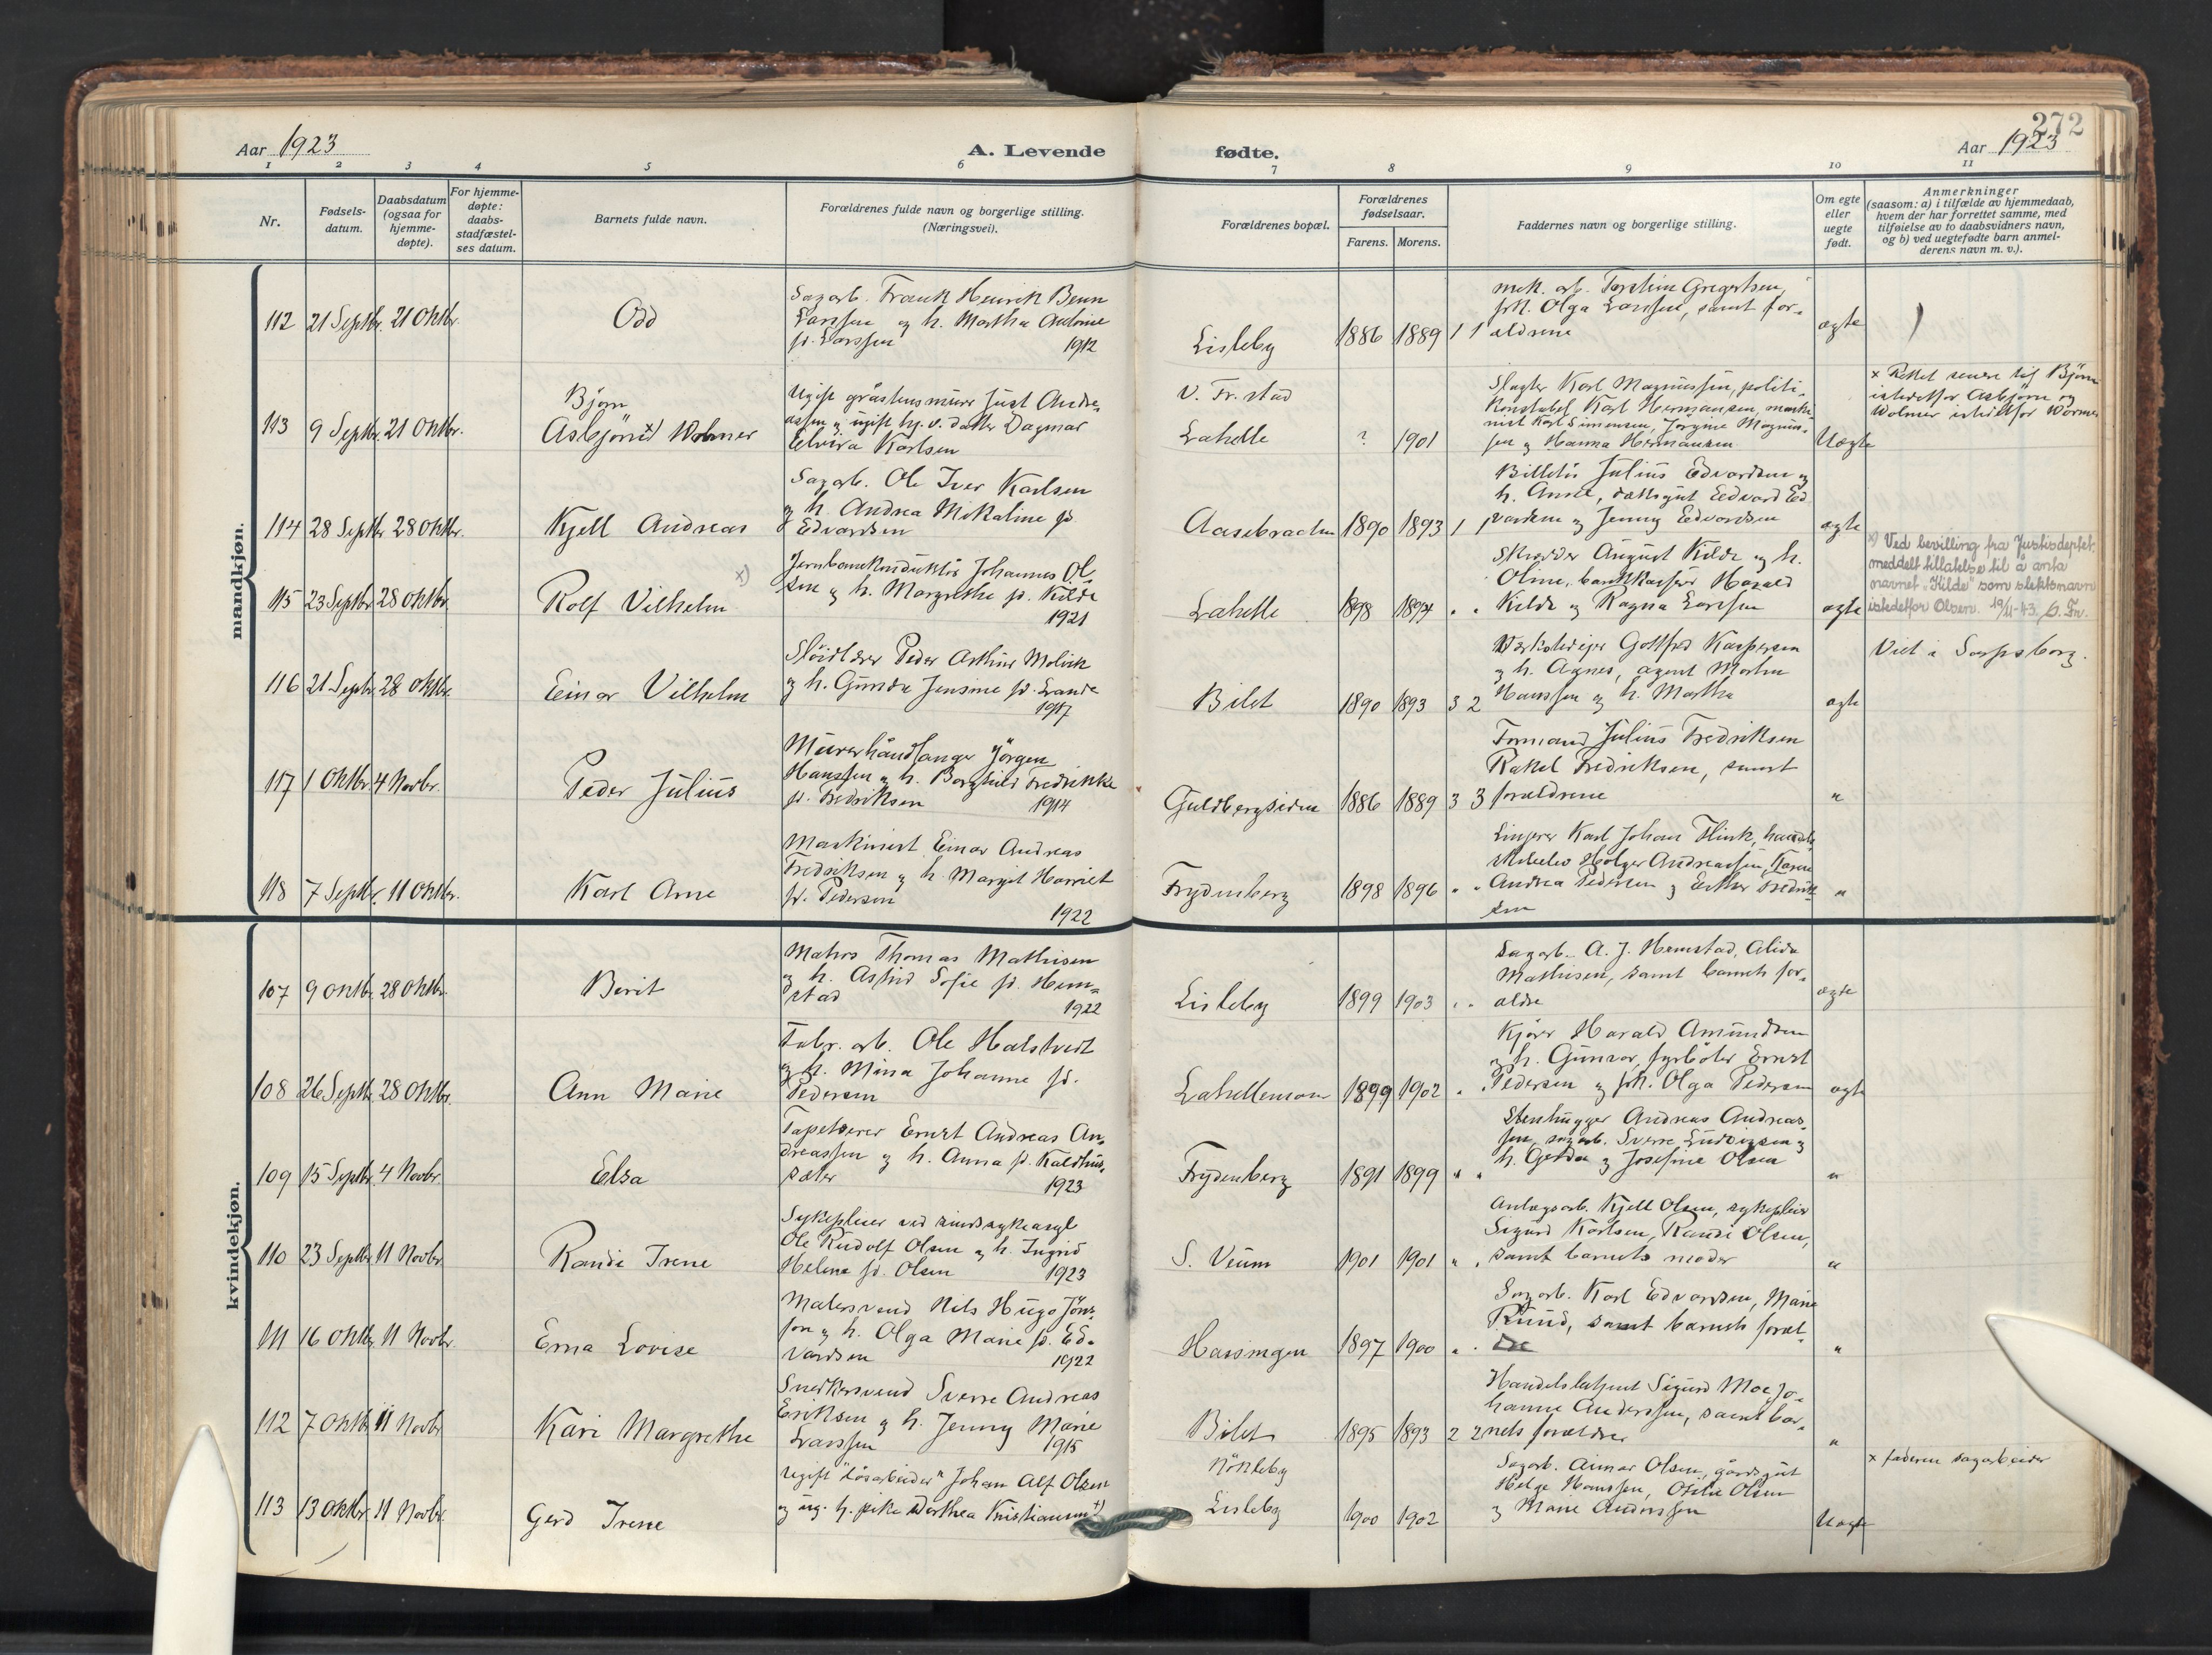 272
Aar 1923
A. Levende fødte.
Aar 1923
1 2 3 4 5 6 7 8 9 10 11
Nr.
Fødsels-
datum.
Daabsdatum
(ogsaa for
hjemme-
døpte).
For hjemme-
døpte:
daabs-
stadfæstel-
ses datum.
Barnets fulde navn.
Forældrenes fulde navn og borgerlige stilling.
(Næringsvei).
Forældrenes bopæl.
Forældrenes
fødselsaar.
Farens. Morens.
Faddernes navn og borgerlige stilling.
Om egte
eller
uegte
født.
Anmerkninger
(saasom: a) i tilfælde av hjemmedaab,
hvem der har forrettet samme, med
tilføielse av to daabsvidners navn,
og b) ved uegtefødte barn anmel-
derens navn m. v.).
mandkjøn.
112 21 Septbr. 21 Oktbr.
Odd
Sagarb. Frank Henrik Benn
Larssen og h. Martha Antonie
fd. Larssen 1912
Lisleby
1886 1889 1 1
mek. arb. Torstein Gregertsen,
frk. Olga Larssen, samt for-
ældrene
ægte
113 9 Septbr. 21 Oktbr.
Bjørn
Asbjørn x) Wolmer
Ugift gråstensmurer Just Andre-
assen og ugift hj. v. datter Dagmar
Elvira Karlsen
V. Fr.stad
Lahelle
? 1901
Slagter Karl Magnussen, politi-
konstabel Karl Hermansen, maski-
nist Karl Simensen, Jørgine Magnus-
sen og Hanna Hermansen
Uægte
x Rettet senere til Bjørn
istedetfor Asbjørn og
Wolmer istedetfor Wormer
114 28 Septbr. 28 Oktbr.
Kjell Andreas
Sagarb. Ole Iver Karlsen
og h. Andrea Mikaline fd.
Edvardsen
Aasebraaten
1890 1893 1 1
Billetør Julius Edvardsen og
h. Anna, dæksgut Edvard Ed-
vardsen og Jenny Edvardsen
ægte
115 23 Septbr. 28 Oktbr.
Rolf Vilhelm x)
Jernbanekonduktør Johannes Ol-
sen og h. Margrethe fd. Kilde
1921
Lahelle
1898 1894 " "
Skrædder August Kilde og h.
Oline, bankkasserer Harald
Kilde og Ragna Larssen
ægte
x) Ved bevilling fra Justisdeptet.
meddelt tillatelse til å anta
navnet "Kilde" som slektsnavn
istedetfor Olsen. 19/11-43. G. Fr.
116 21 Septbr. 28 Oktbr.
Einar Vilhelm
Sløidlærer Peder Arthur Molvik
og h. Gunda Jensine fd. Lande
1917
Bilet
1890 1893 3 2
Verkstedeier Gottfred Kaspersen
og h. Agnes, agent Morten
Hanssen og h. Martha
ægte
Viet i Sarpsborg.
117 1 Oktbr. 4 Novbr.
Peder Julius
Murerhåndlanger Jørgen
Hanssen og h. Borghild Fredrikke
fd. Fredriksen 1914
Guldbergsiden
1886 1889 3 3
Formand Julius Fredriksen
Rakel Fredriksen, samt
forældrene
"
118 7 Septbr. 11 Oktbr.
Karl Arne
Maskinist Einar Andreas
Fredriksen og h. Margit Harriet
fd. Pedersen
1922
Frydenberg
1898 1896 " "
Karl Johan Flink,
Holger Andreassen, Karen
Andrea Pedersen og Esther Fredrik-
sen
"
kvindekjøn.
107 9 Oktbr. 28 Oktbr.
Berit
Matros Thomas Mathisen
og h. Astrid Sofie fd. Hem-
stad
1922
Lisleby
1899 1903 " "
Sagarb. A. J. Hemstad, Alida
Mathisen, samt barnets for-
ældre
ægte
108 26 Septbr. 28 Oktbr.
Ann Marie
Fabr. arb. Ole Halstvedt
og h. Mina Johanne fd.
Pedersen
Lahellemoen
1899 1902 " "
Kjører Harald Amundsen
og h. Gunvor, fyrbøter Ernst
Pedersen og frk. Olga Pedersen
ægte
109 15 Septbr. 4 Novbr.
Elsa
Tapetserer Ernst Andreas An-
dreassen og h. Anna fd. Kaldhus-
sæter
1923
Frydenberg
1891 1899 " "
Stenhugger Andreas Andreas-
sen, sagarb. Sverre Ludvigsen og
h. Gerda og Josefine Olsen
"
110 23 Septbr. 11 Novbr.
Randi Irene
Sykepleier ved sindssykeasyl
Ole Rudolf Olsen og h. Ingrid
Helene fd. Olsen 1923
S. Veum
1901 1901 " "
Anlægsarb. Kjell Olsen, sykepleier
Sigurd Karlsen, Randi Olsen,
samt barnets moder
"
111 16 Oktbr. 11 Novbr.
Erna Lovise
Malersvend Nils Hugo Jøns-
son og h. Olga Marie fd. Ed-
vardsen 1922
Hassingen
1897 1900 " "
Sagarb. Karl Edvardsen, Marie
Ruud, samt barnets foræl-
dre
"
112 7 Oktbr. 11 Novbr.
Kari Margrethe
Snedkersvend Sverre Andreas
Eriksen og h. Jenny Marie
Larssen 1915
Bilet
1895 1893 2 2
Handelsbetjent Sigurd Moe, Jo-
hanne Anderssen, samt bar-
nets forældre
"
113 13 Oktbr. 11 Novbr.
Gerd Irene
Ugift "løsarbeider" Johan Alf Olsen
og ug. h. pike Dorthea Kristiansen x)
Nökleby
Lisleby
1900 1902
Sagarb. Aimar Olsen, gårdsgut
Helge Hanssen, Otilie Olsen
og Marie Anderssen
Uægte
x faderen sagarbeider